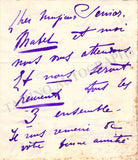 Cher Monsieur Senior.
Mabel et moi
nous vous attendons.
Et nous serons
tous les
3 ensemble.
Je vous remercie de
votre bonne amitié